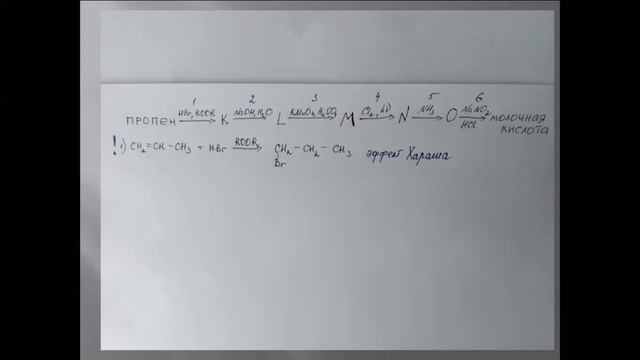 1 2 3 4 5 6
ПРОПЕН —HBr, ROOR→ K —NaOH, H2O→ L —KMnO4, H2SO4→ M —Cl2, (P)→ N —NH3→ O —NaNO2, HCl→ МОЛОЧНАЯ КИСЛОТА
! 1) CH2=CH-CH3 + HBr —ROOR→ CH2-CH2-CH3 эффект Хараша
Br